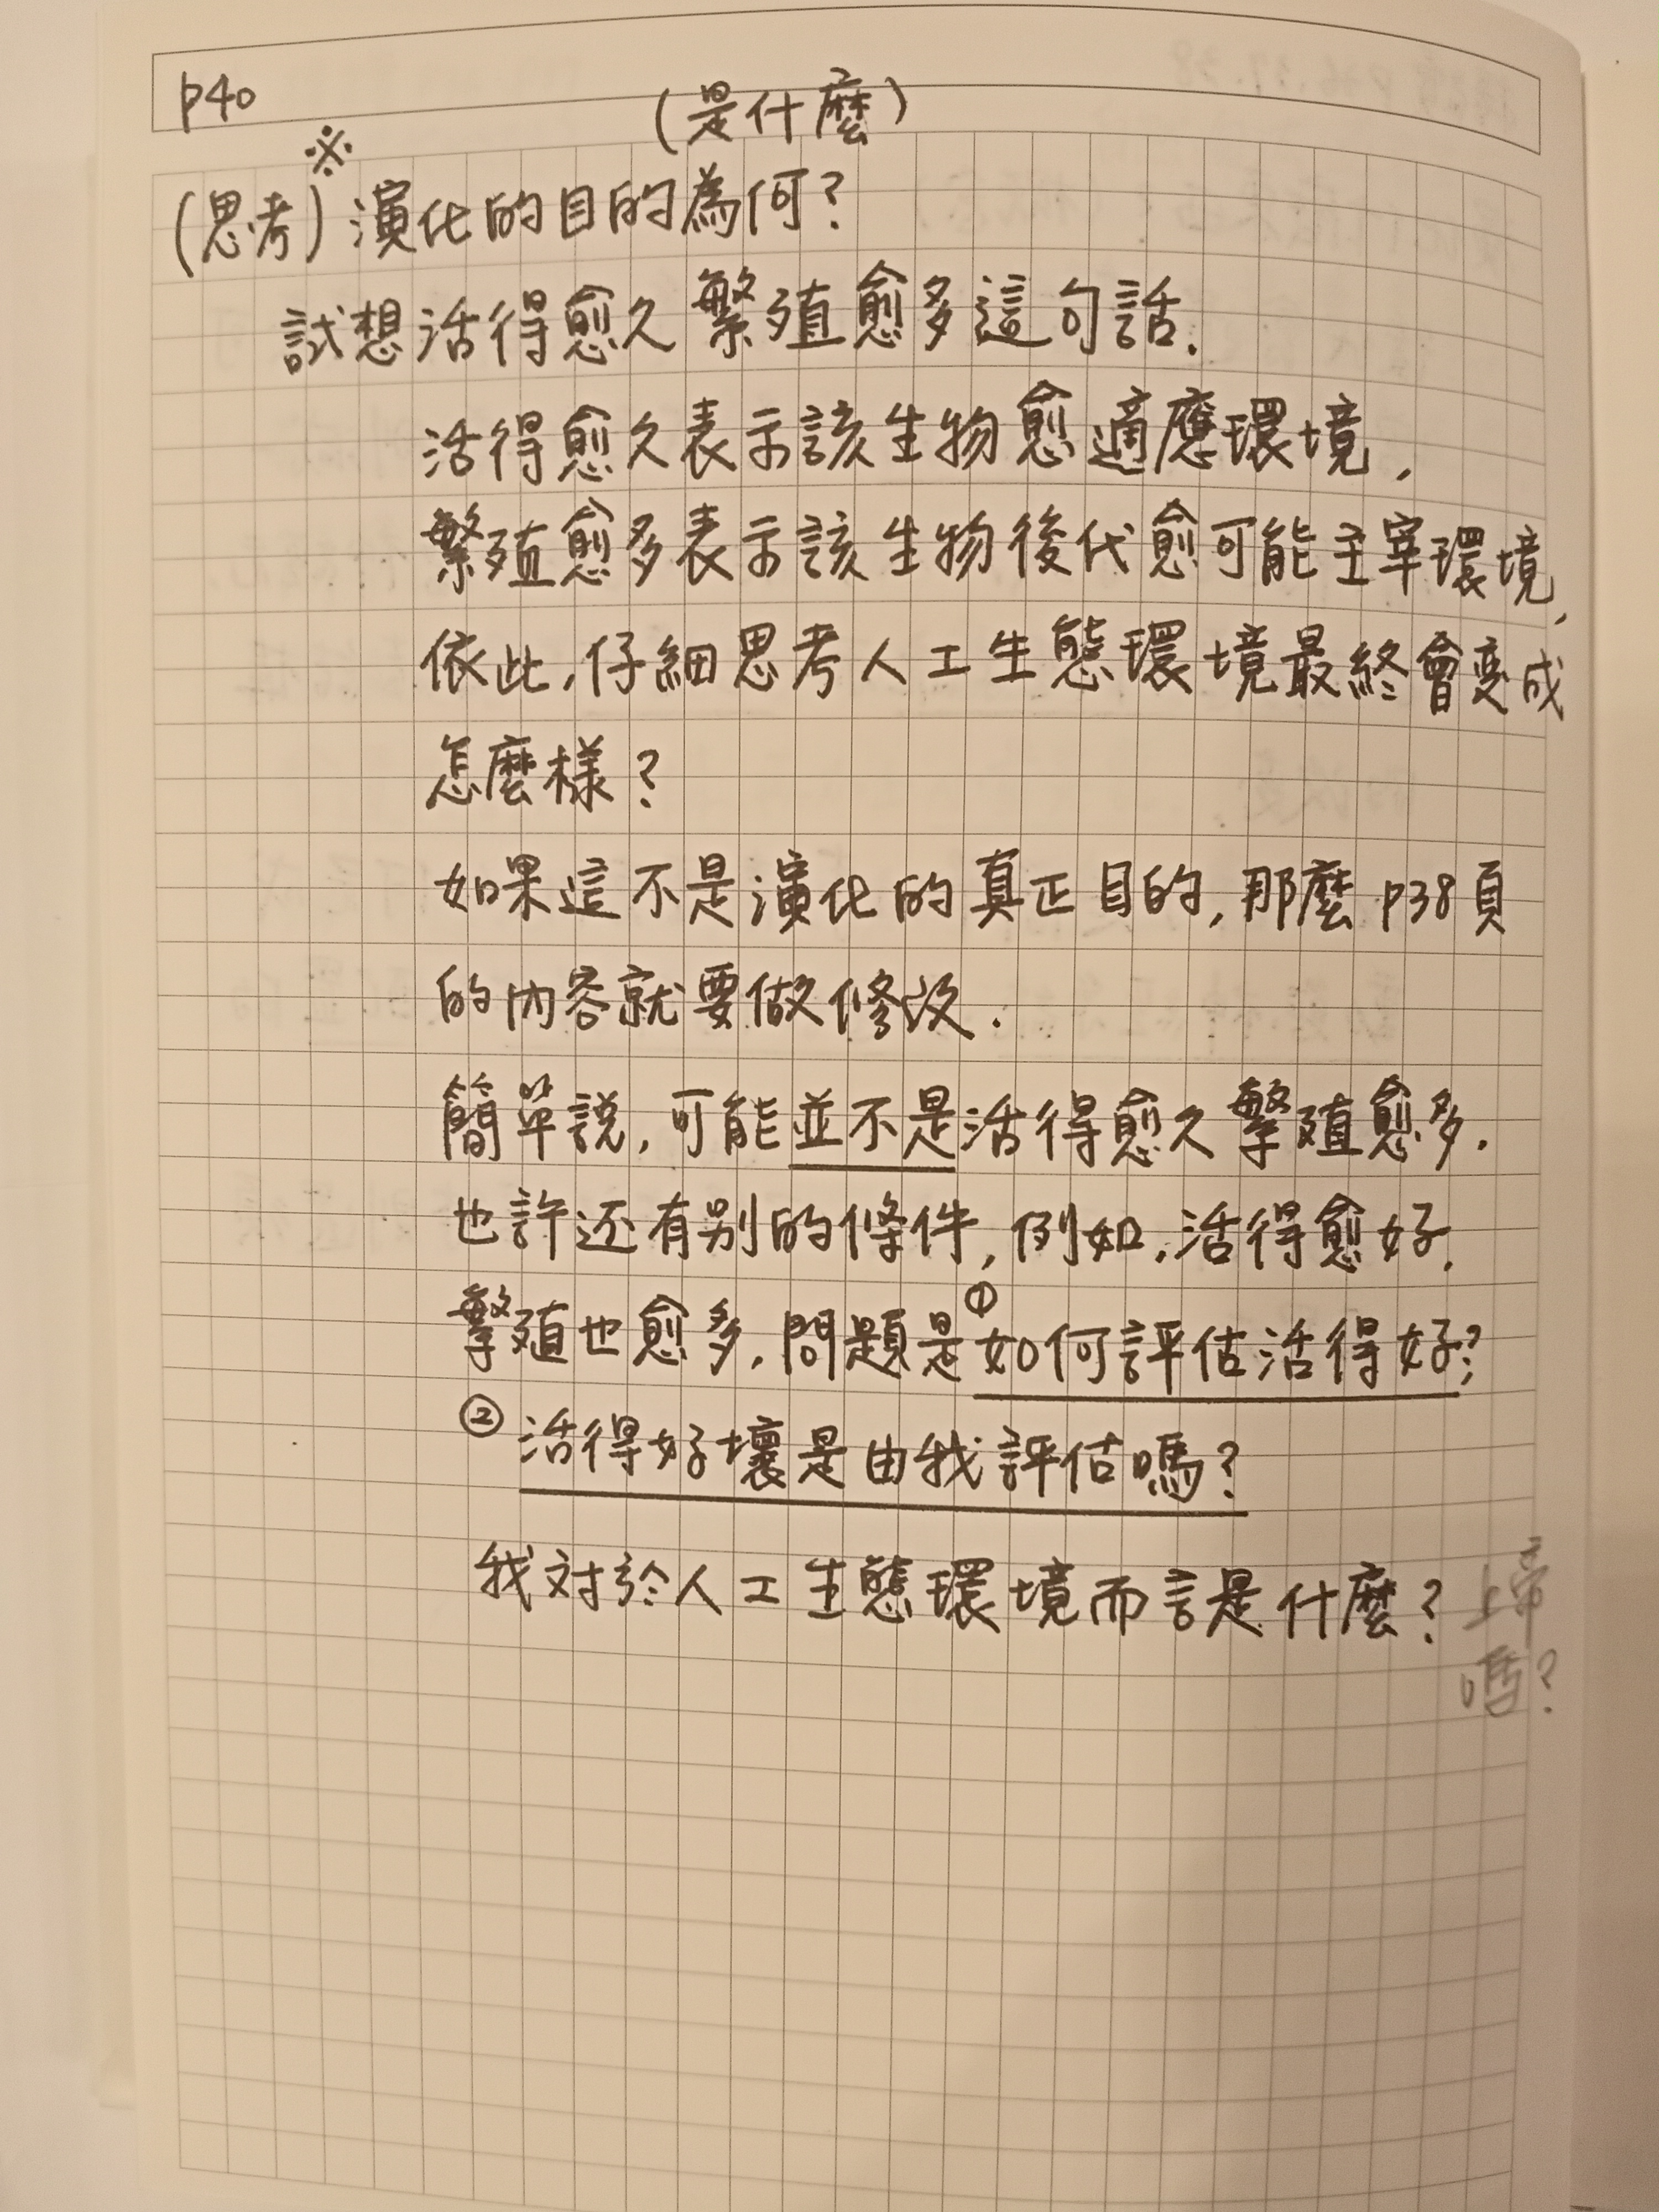 p40
(是什麼)
※
(思考) 演化的目的為何?
試想活得愈久繁殖愈多這句話.
活得愈久表示該生物愈適應環境,
繁殖愈多表示該生物後代愈可能主宰環境,
依此,仔細思考人工生態環境最終會变成
怎麼樣?
如果這不是演化的真正目的,那麼p38頁
的內容就要做修改.
簡單說,可能並不是活得愈久繁殖愈多.
也許还有別的條件,例如,活得愈好,
繁殖也愈多,問題是①如何評估活得好?
②活得好壞是由我評估嗎?
我对於人工生態環境而言是什麼? 上帝
嗎?